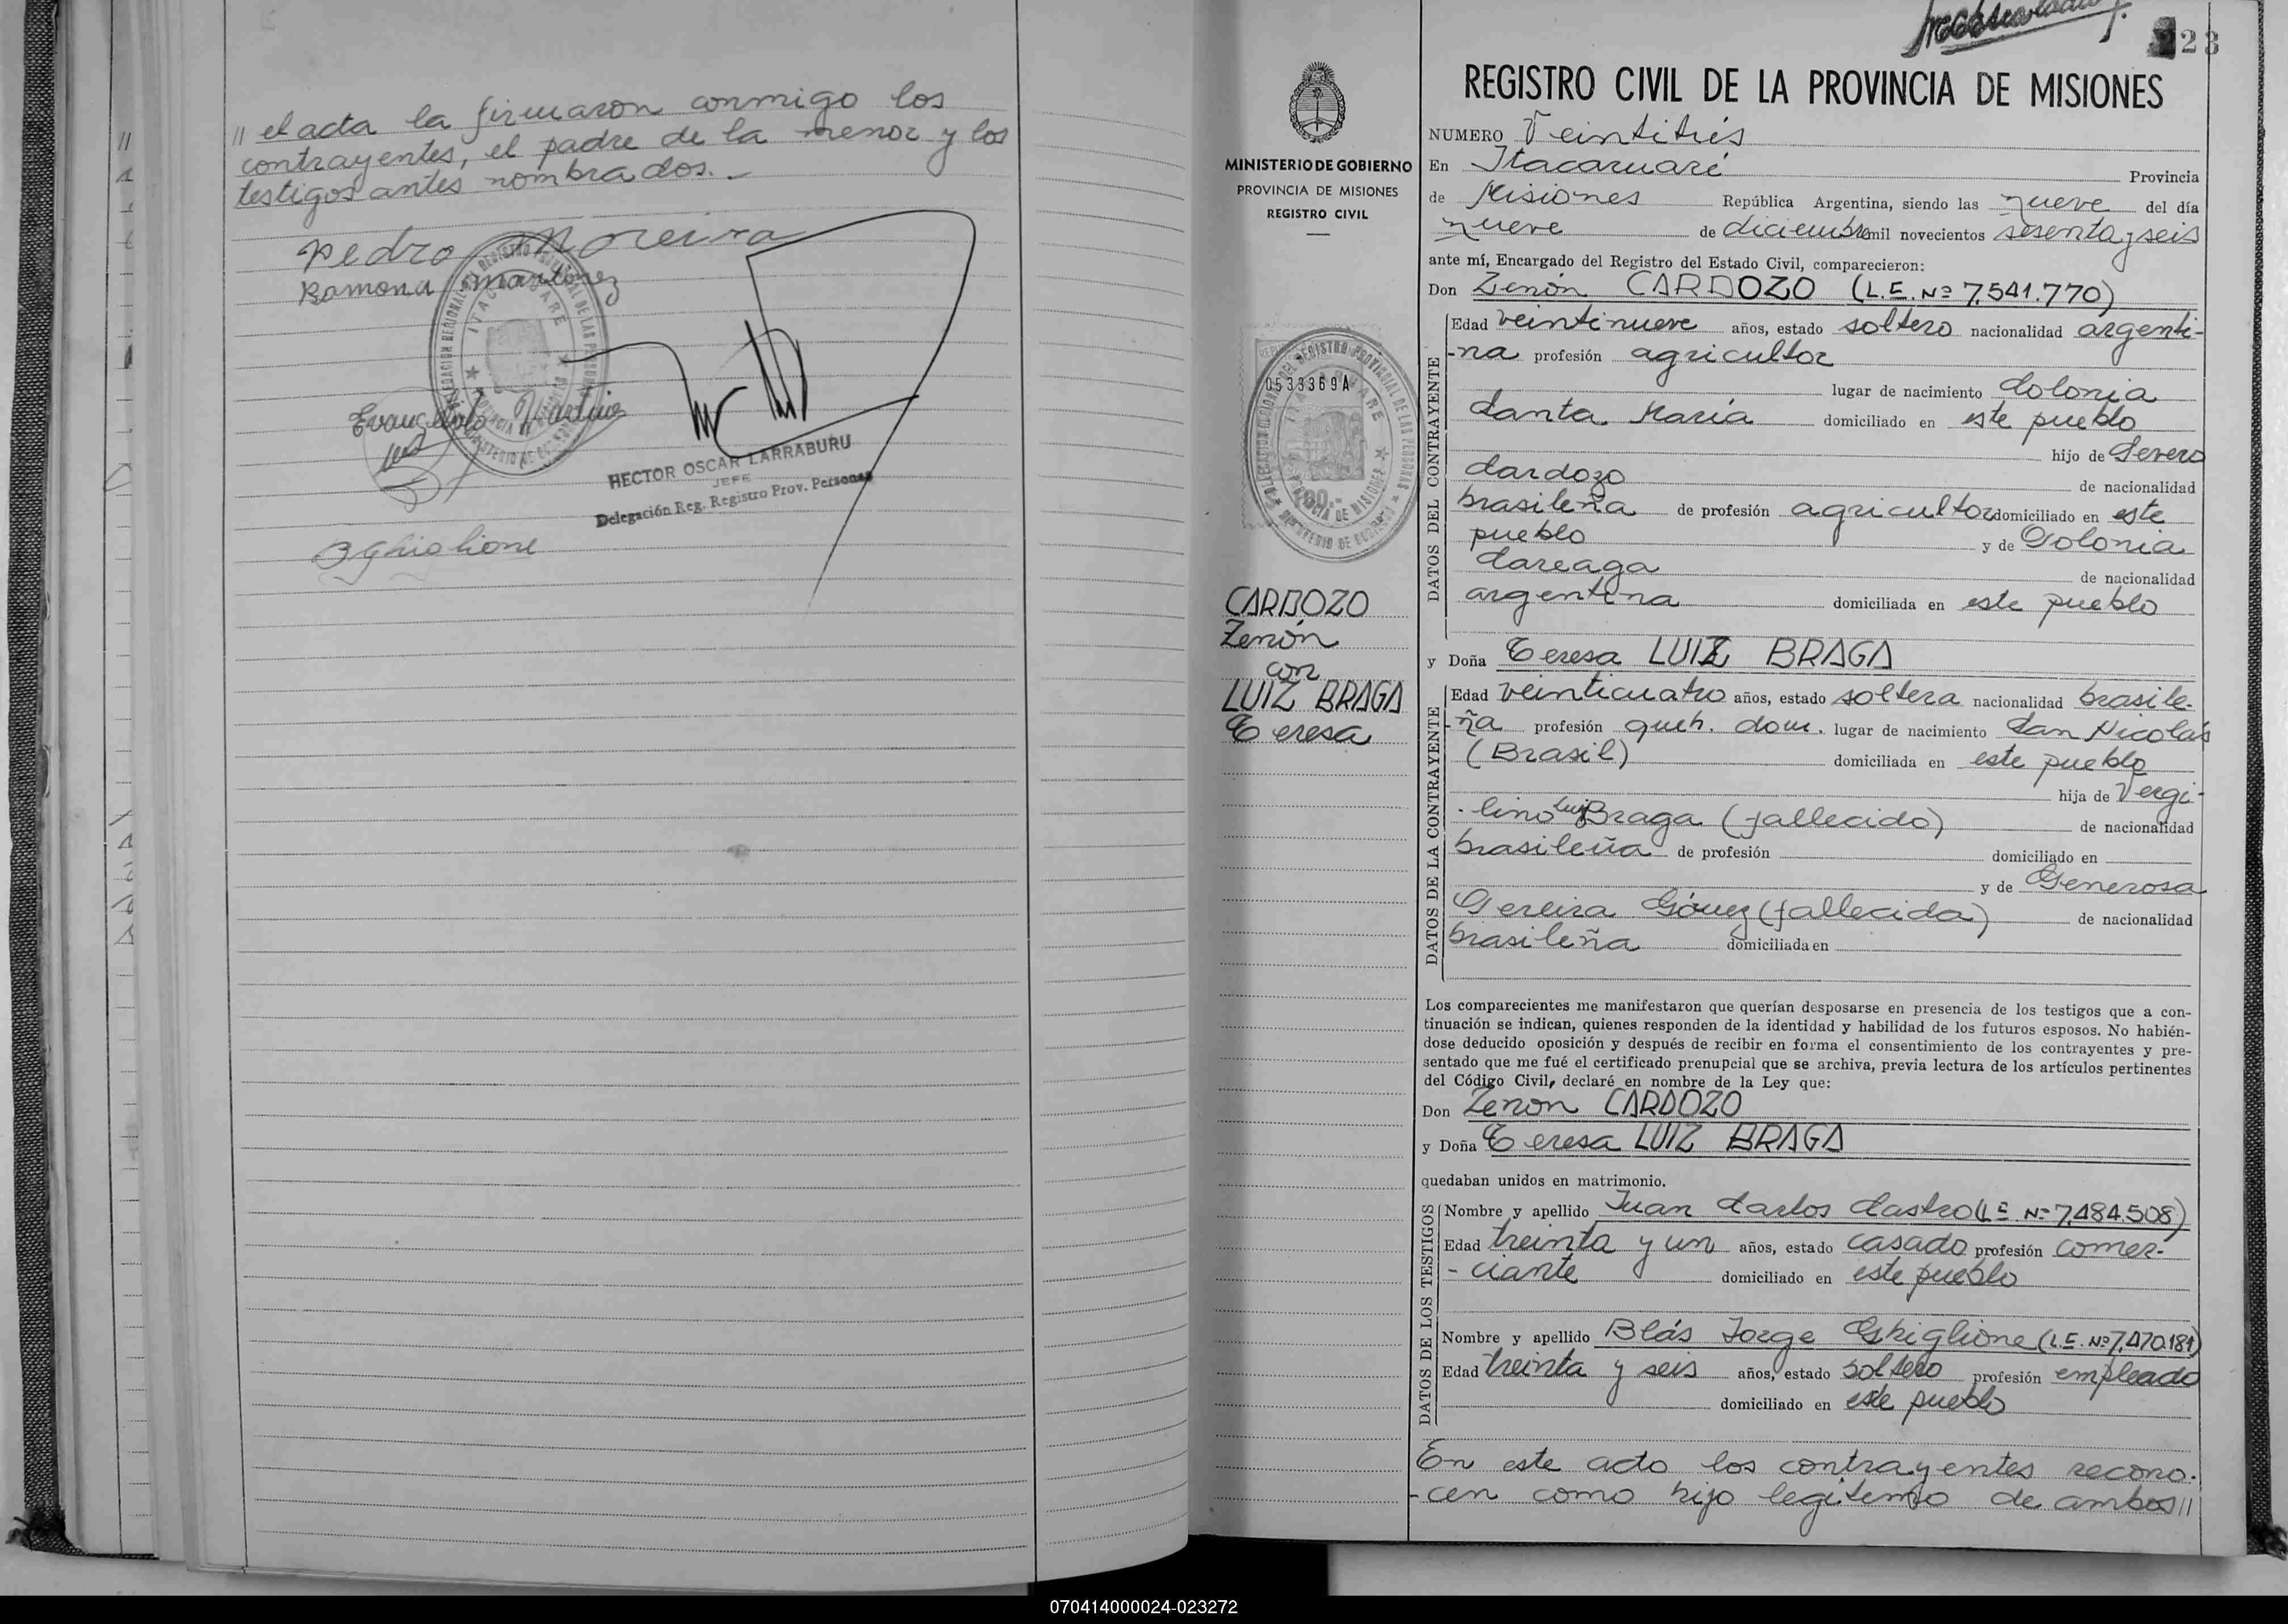 // el acta la firmaron conmigo los
contrayentes, el padre de la menor y los
testigos antes nombrados. -
Pedro Moreira
Ramona Martinez
HECTOR OSCAR LARRABURU
JEFE
Delegación Reg. Registro Prov. Personas
BGhiglione
23
REGISTRO CIVIL DE LA PROVINCIA DE MISIONES
MINISTERIO DE GOBIERNO
PROVINCIA DE MISIONES
REGISTRO CIVIL
0533369A
CARDOZO
Zenón
con
LUIZ BRAGA
Teresa
NUMERO Veintitrés
En Itacaruaré Provincia
de Misiones República Argentina, siendo las nueve del día
nueve de diciembre mil novecientos sesenta y seis
ante mí, Encargado del Registro del Estado Civil, comparecieron:
Don Zenón CARDOZO (L.E. Nº 7.541.770)
DATOS DEL CONTRAYENTE
Edad veintinueve años, estado soltero nacionalidad argenti-
-na profesión agricultor
lugar de nacimiento Colonia
Santa María domiciliado en este pueblo
hijo de Severo
Cardozo de nacionalidad
brasileña de profesión agricultor domiciliado en este
pueblo y de Polonia
Careaga de nacionalidad
argentina domiciliada en este pueblo
y Doña Teresa LUIZ BRAGA
DATOS DE LA CONTRAYENTE
Edad veinticuatro años, estado soltera nacionalidad brasile-
-ña profesión queh. dom. lugar de nacimiento San Nicolás
(Brasil) domiciliada en este pueblo
hija de Vergi-
-lino Luiz Braga (fallecido) de nacionalidad
brasileña de profesión domiciliado en
y de Generosa
Pereira Gómez (fallecida) de nacionalidad
brasileña domiciliada en
Los comparecientes me manifestaron que querían desposarse en presencia de los testigos que a con-
tinuación se indican, quienes responden de la identidad y habilidad de los futuros esposos. No habién-
dose deducido oposición y después de recibir en forma el consentimiento de los contrayentes y pre-
sentado que me fué el certificado prenupcial que se archiva, previa lectura de los artículos pertinentes
del Código Civil, declaré en nombre de la Ley que:
Don Zenon CARDOZO
y Doña Teresa LUIZ BRAGA
quedaban unidos en matrimonio.
DATOS DE LOS TESTIGOS
Nombre y apellido Juan Carlos Castro (L.E. Nº 7.484.508)
Edad treinta y un años, estado casado profesión comer-
-ciante domiciliado en este pueblo
Nombre y apellido Blás Jorge Ghiglione (L.E. Nº 7.470.181)
Edad treinta y seis años, estado soltero profesión empleado
domiciliado en este pueblo
En este acto los contrayentes recono-
-cen como hijo legítimo de ambos //
070414000024-023272